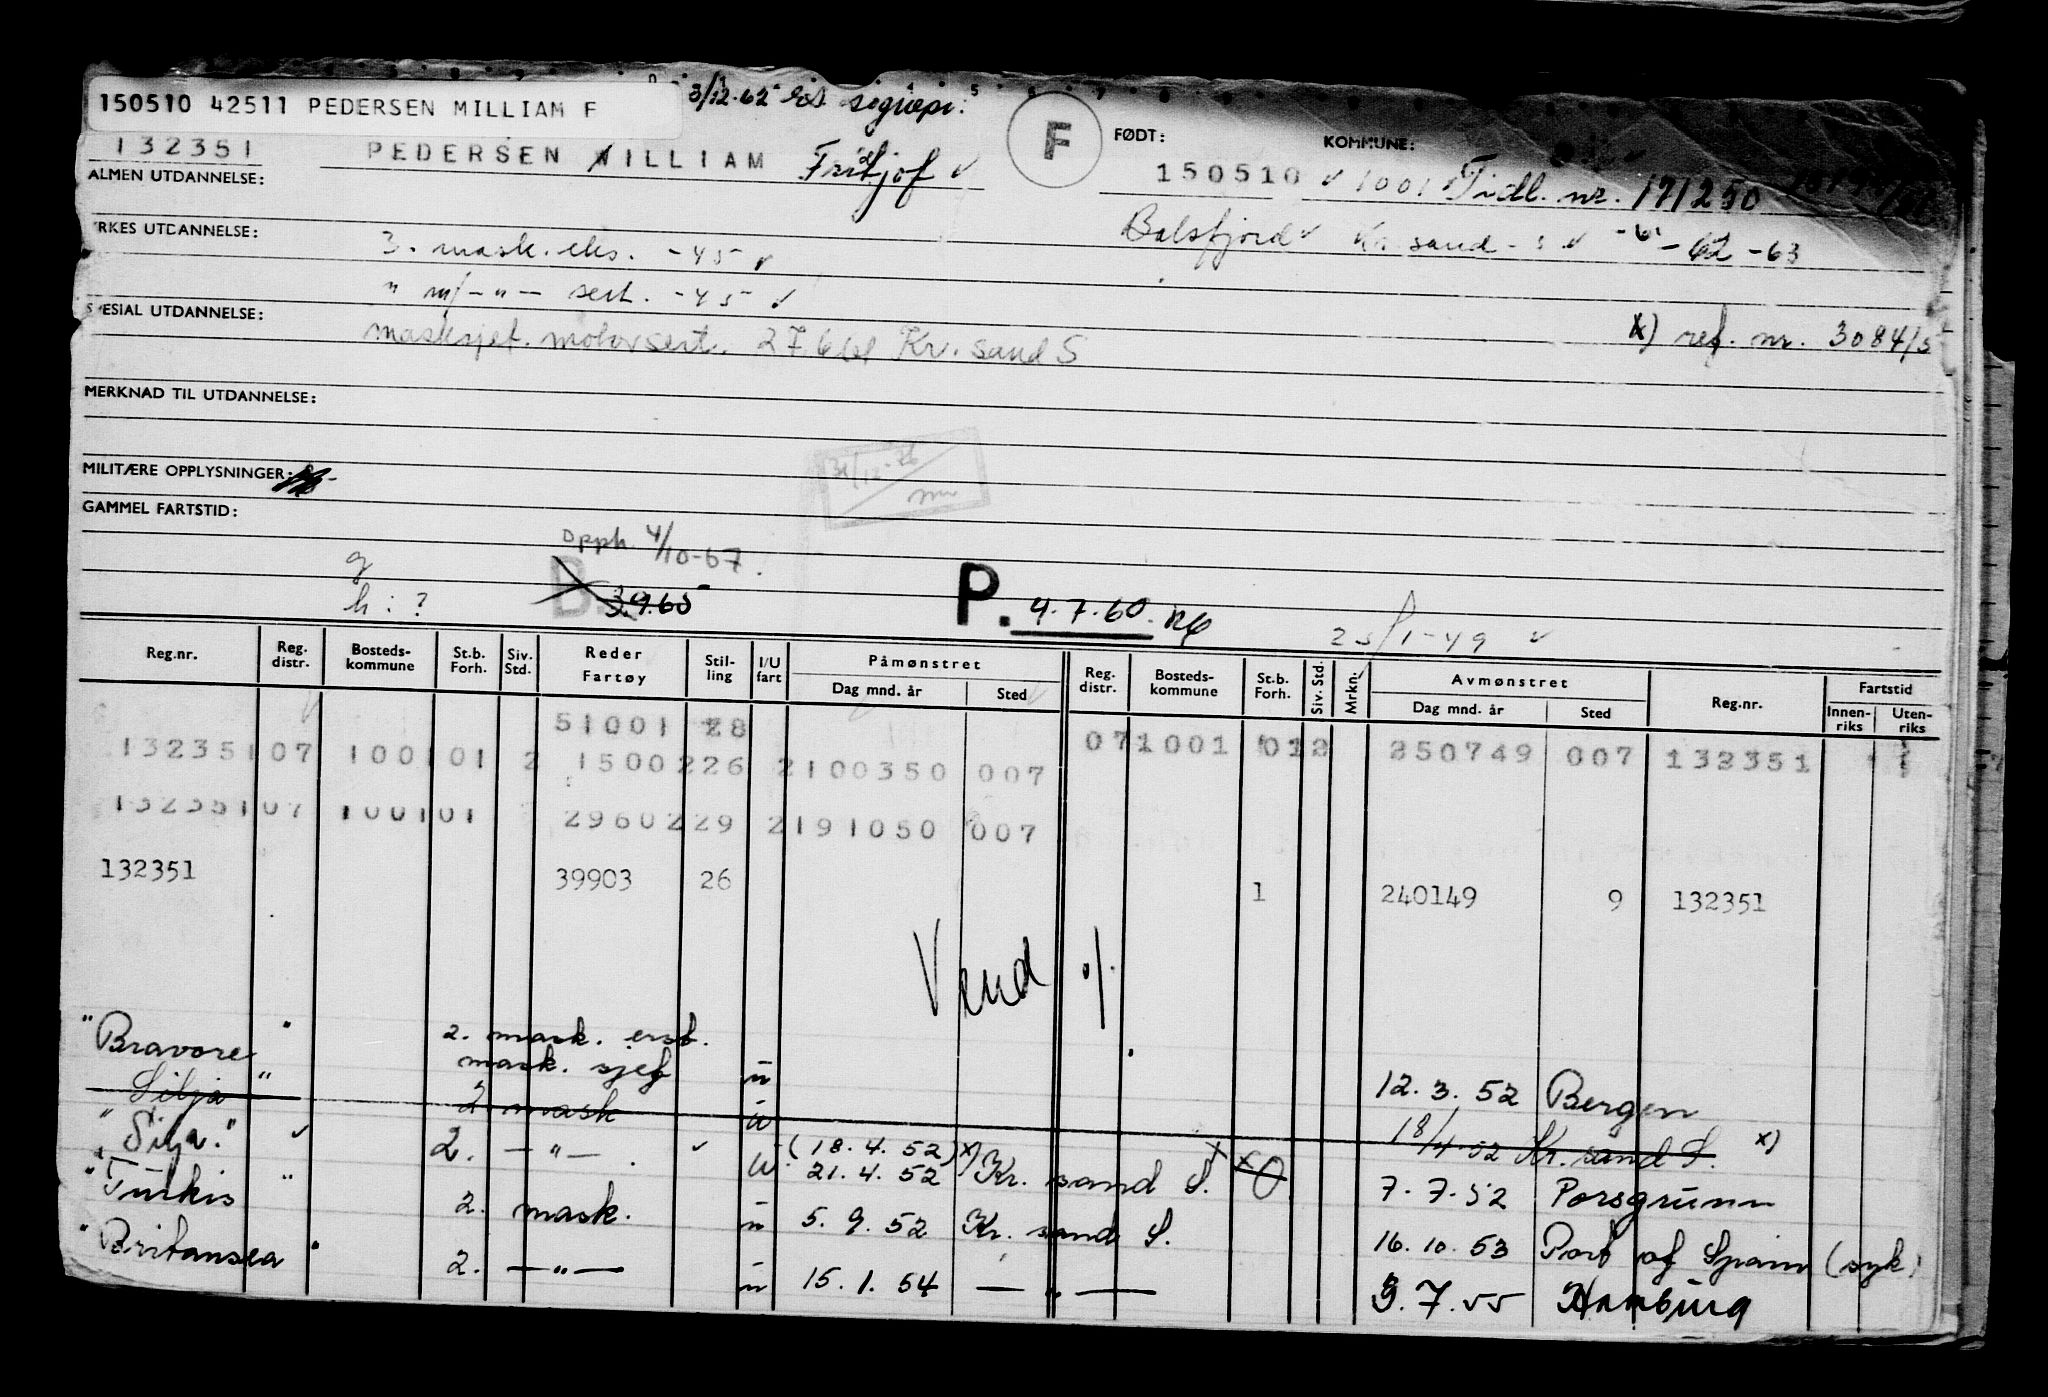 150510 42511 PEDERSEN MILLIAM F
3/12.62
132351 PEDERSEN WILLIAM Fridtjof ✓ F FØDT: 150510 ✓ KOMMUNE: 1001 Tidl. nr. 171250
ALMEN UTDANNELSE:
Balsfjord ✓ Kr. sand - s ✓ -61- -62 -63
YRKES UTDANNELSE: 3. mask. eks. -45 ✓
" m/-"- sert. -45 ✓
SPESIAL UTDANNELSE: masksjef. motorsert. 27661 Kr. sand S
x) ref. nr. 3084/5
MERKNAD TIL UTDANNELSE:
31/12-76
MILITÆRE OPPLYSNINGER:
GAMMEL FARTSTID:
Opph. 4/10-67.
g
h : ?
B. 3.9.65
P. 4.7.60.
25/1-49 ✓
Reg.nr. Reg. distr. Bosteds-kommune St.b. Forh. Siv. Std. Reder Fartøy Stil-ling I/U fart Påmønstret Dag mnd. år Sted Reg. distr. Bosteds-kommune St.b. Forh. Siv. Std. Mrkn. Avmønstret Dag mnd. år Sted Reg.nr. Fartstid Innen-riks Uten-riks
51001 28 071001 012 250749 007 132351
132351 07 1001 01 2 15002 26 2 100350 007
132351 07 1001 01 29602 29 2 191050 007
132351 39903 26 1 240149 9 132351
Vend %
"Bravore" 2. mask. erst. mask. sjef u 12.3.52 Bergen
Silja" 2 mask u 18/4-52 Kr. sand S. x)
"Silja." ✓ 2. —"— . ✓ u (18.4.52)x) 21.4.52 Kr. sand S. 7.7.52 Porsgrunn
"Turkis" 2. mask. u 5.9.52 Kr. sand S. 16.10.53 Port of Spain (syk)
"Britansea" 2. —"— u 15.1.54 —"— 9.7.55 Hamburg